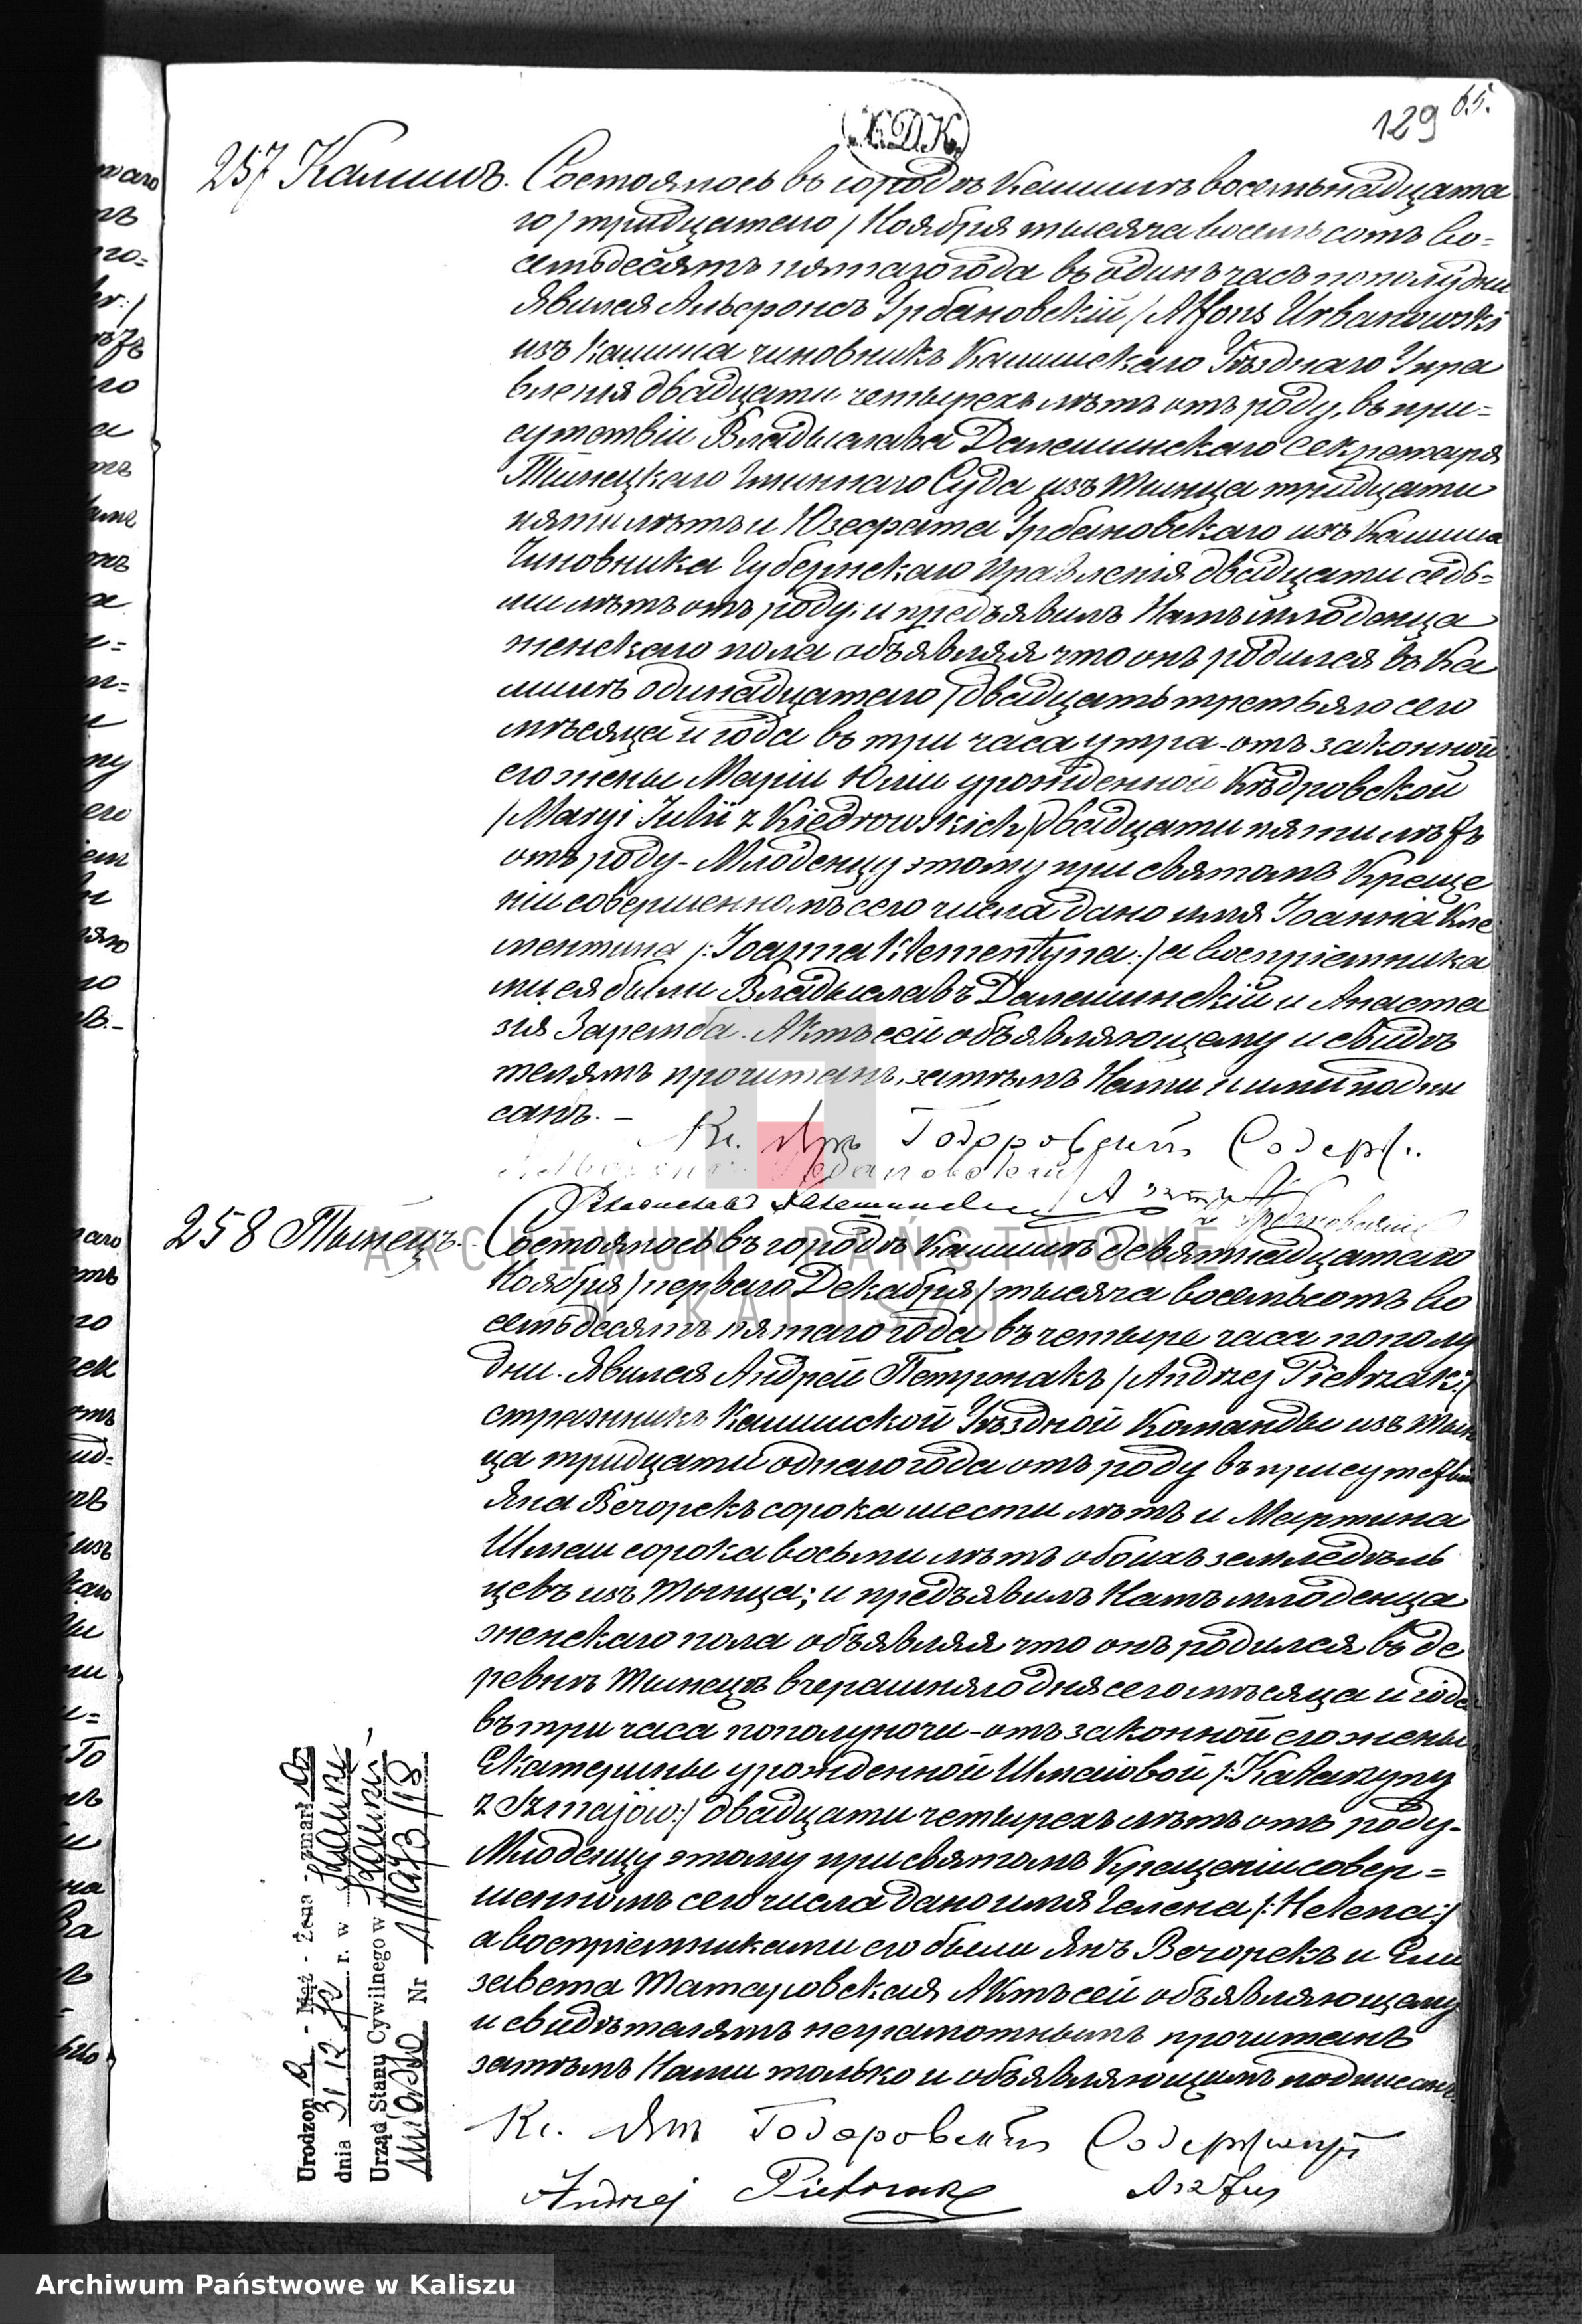 65.
129
K.D.K.
257 Калишъ. Состоялось въ городѣ Калишѣ восемьнадцата
го /тридцатаго/ Ноября тысяча восемьсотъ во=
семьдесятъ пятаго года въ одинъ часъ пополудни
Явился Альфонсъ Урбановскій /Alfons Urbanowski
изъ Калиша чиновникъ Калишскаго Уѣзднаго Упра
вленія двадцати четырехъ лѣтъ отъ роду, въ при=
сутствіи Владыслава Далешинскаго Секретаря
Тынецкаго Гминнаго Суда изъ Тынца тридцати
пяти лѣтъ и Юзефата Урбановскаго изъ Калиша
Чиновника Губернскаго Правленія двадцати седь=
ми лѣтъ отъ роду; и предъявилъ Намъ младенца
женскаго пола объявляя что онъ родился въ Ка
лишѣ одинадцатаго /двадцать третьяго сего
мѣсяца и года въ три часа утра отъ законной
его жены Маріи Юліи урожденной Кѣдровской
/Maryi Julii z Kiedrowskich/ двадцати пяти лѣтъ
отъ роду - Младенцу этому при святомъ Креще
ніи совершенномъ сего числа дано имя Іоанна Кле
ментина /:Joanna Klementyna:/ а воспріемника
ми ея были Владыславъ Далешинскій и Анаста
зія Заремба. Актъ сей объявляющему и свидѣ
телямъ прочитанъ, затѣмъ Нами и ими подпи
санъ. -
Кс. Янъ Годоровскій Содерж..
Урбановскій
Владиславъ Далешинскій
Урбановскій
258 Тынецъ. Состоялось въ городѣ Калишѣ девятнадцатаго
Ноября /перваго Декабря/ тысяча восемьсотъ во
семьдесятъ пятаго года въ четыре часа пополу
дни. Явился Андрей Петржакъ /Andrzej Pietrzak:/
стражникъ Калишской Уѣздной Команды изъ Тын
ца тридцати одного года отъ роду въ присутствіи
Яна Вечорекъ сорока шести лѣтъ и Мартина
Шмаи сорока восьми лѣтъ обоихъ земледѣль
цевъ изъ Тынца; и предъявилъ Намъ младенца
женскаго пола объявляя что онъ родился въ де
ревнѣ Тынецъ вчерашняго дня сего мѣсяца и года
въ три часа пополуночи - отъ законной его жены
Екатерины урожденной Шмаіовой /:Katarzyny
z Szmajów:/ двадцати четырехъ лѣтъ отъ роду-
Младенцу этому при святомъ Крещеніи совер=
шенномъ сего числа дано имя Гелена /:Helena:/
а воспріемниками его были Янъ Вечорекъ и Ели
завета Матаровская Актъ сей объявляющему
и свидѣтелямъ неграмотнымъ прочитанъ
затѣмъ Нами только и объявляющимъ подписанъ
Кс. Янъ Годоровскій Содержащій
Andrzej Pietrzak
Urodzon - Mąż - Żona - zmarł
dnia 31.12 r. w Kaliszu
Urząd Stanu Cywilnego w Kaliszu
Nr
ARCHIWUM PAŃSTWOWE
W KALISZU
Archiwum Państwowe w Kaliszu